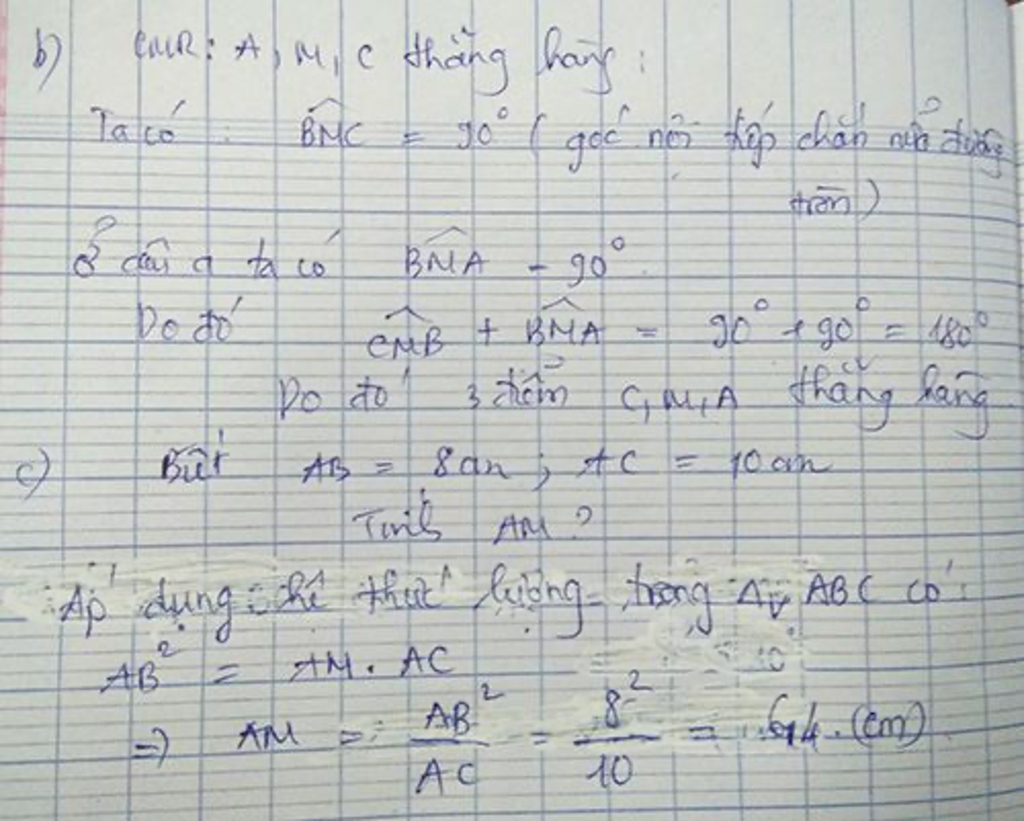 b) CMR: A, M, C thẳng hàng:
Ta có: BMC = 90° (góc nội tiếp chắn nửa đường
tròn)
Ở câu a ta có BMA = 90°
Do đó CMB + BMA = 90° + 90° = 180°
Do đó 3 điểm C, M, A thẳng hàng
c) Biết AB = 8cm; AC = 10cm
Tính AM?
Áp dụng hệ thức lượng trong Δv ABC có:
AB² = AM. AC
=> AM = AB²/AC = 8²/10 = 6,4 (cm)